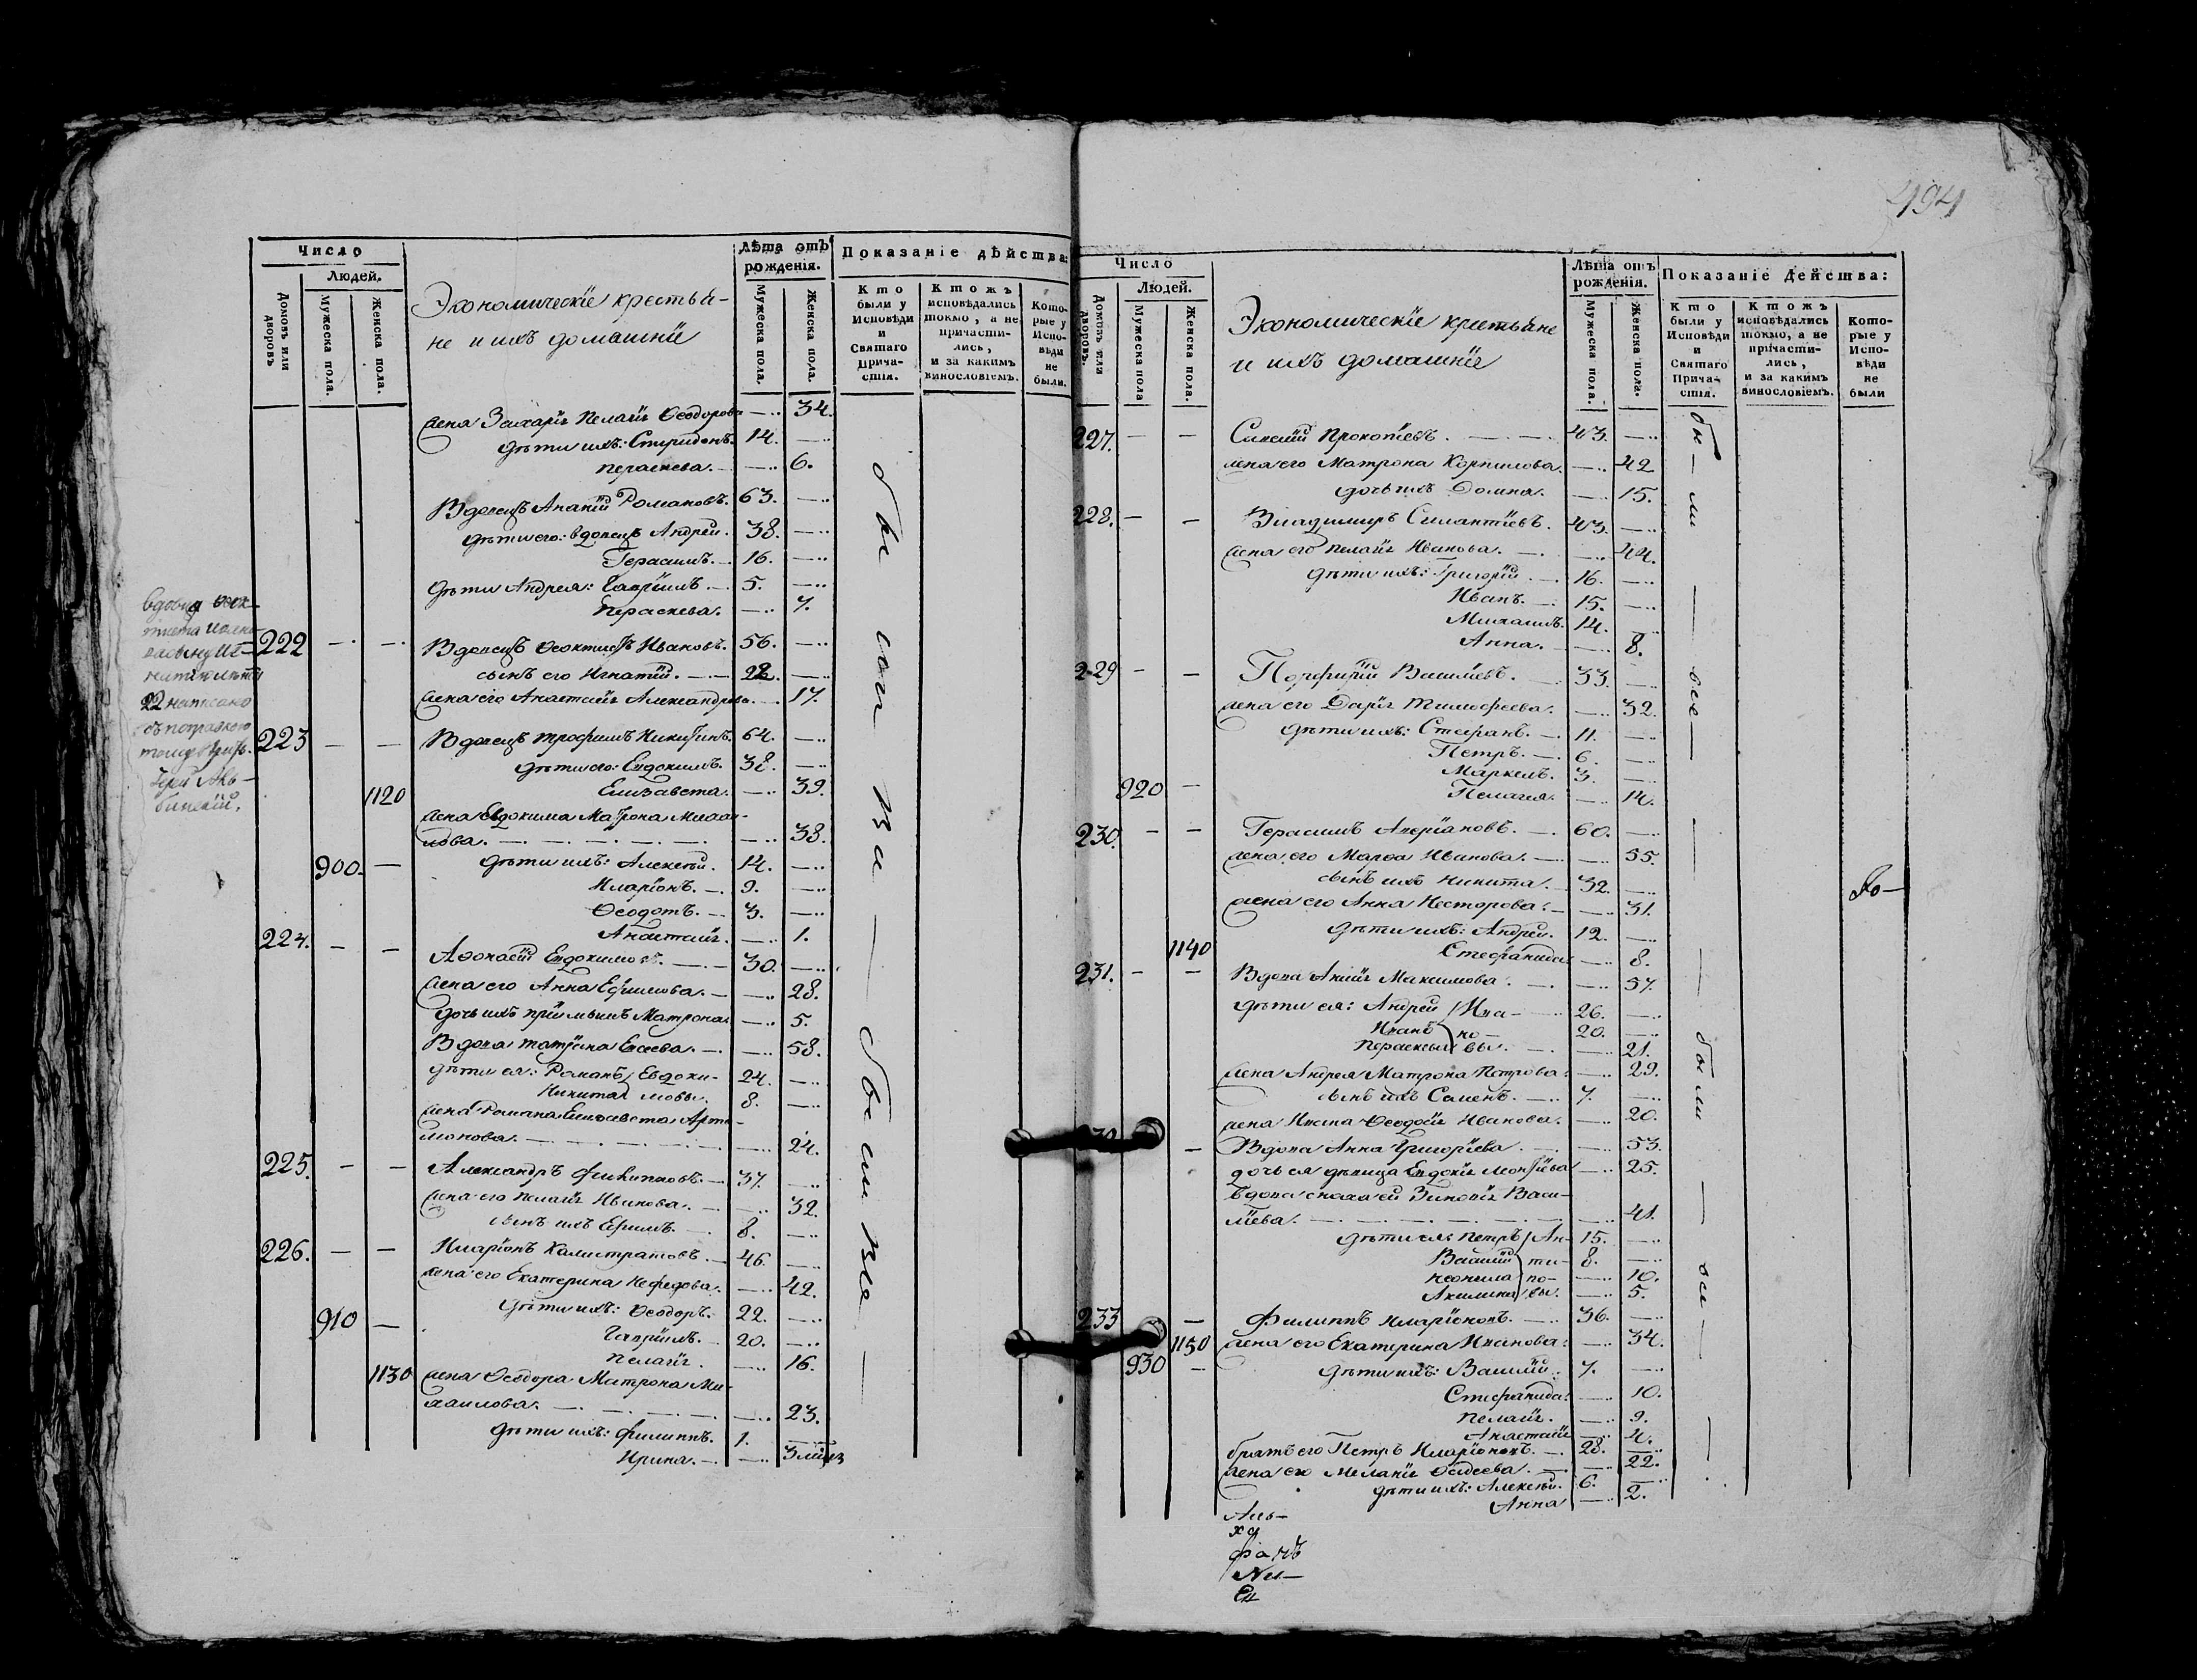 494
Число
Людей.
Домовъ или дворовъ
Мужеска пола.
Женска пола.
Экономическіе крестья-
не и ихъ домашніе
Лѣта отъ рожденія.
Мужеска пола.
Женска пола.
Показаніе дѣйства:
Кто были у Исповѣди и Святаго Причастія.
Ктожъ исповѣдались токмо, а не причасти-лись, и за какимъ винословіемъ.
Кото-рые у Испо-вѣди не были.
Жена Захарія Пелагія Ѳеодорова —.. 34.
Дѣти ихъ: Спиридонъ. 14. —..
Параскева. —.. 6.
Вдовецъ Ананій Романовъ. 63. —..
Дѣти его: вдовецъ Андрей. 38. —..
Герасимъ. 16. —..
Дѣти Андрея: Гавріилъ. 5. —..
Параскева. —.. 7.
222 — — Вдовецъ Ѳеоктистъ Ивановъ. 56. —..
сынъ его Игнатій. 22. —..
Жена его Анастасія Александрова. 17.
22 написано
223 — — Вдовецъ Трофимъ Никитинъ. 64. —..
Дѣти его: Евдокимъ. 38. —..
1120 Елизавета. —.. 39.
Жена Евдокима Матрона Михаи-
лова. —.. 38.
900 — Дѣти ихъ: Алексѣй. 14. —..
Иларіонъ. 9. —..
Ѳеодотъ. 3. —..
Анастасія. —.. 1.
224. — — Аѳонасій Евдокимовъ. 30. —..
Жена его Анна Ефимова. —.. 28.
Дочь ихъ пріемышъ Матрона —.. 5.
Вдова Татіана Елсеева. —.. 58.
Дѣти ея: Романъ Евдоки- 24. —..
Никита мовы. 8. —..
Жена Романа Елисавета Арта-
монова. —.. 24.
225. — — Александръ Филипповъ. 37. —..
Жена его Пелагія Иванова. —.. 32.
сынъ ихъ Ефимъ. 8. —..
226. — — Иларіонъ Калистратовъ. 46. —..
Жена его Екатерина Нефедова. —.. 42.
910 — Дѣти ихъ: Ѳеодоръ. 22. —..
Гавріилъ. 20. —..
Пелагія. —.. 16.
1130 Жена Ѳеодора Матрона Ми-
хаилова. —.. 23.
Дѣти ихъ: Филиппъ. 1. —..
Ирина. —..
Число
Людей.
Домовъ или дворовъ.
Мужеска пола
Женска пола.
Экономическіе крестьяне
и ихъ домашніе
Лѣта отъ рожденія.
Мужеска пола.
Женска пола.
Показаніе Действа:
Кто были у Исповѣди и Святаго Прича-стія.
Ктожъ исповѣдались токмо, а не причасти-лись, и за какимъ винословіемъ.
Кото-рые у Испо-вѣди не были
227. — — Прокопіевъ. 43. —..
Жена его Матрона Корнилова. —.. 42
Дочь ихъ Домна. —.. 15.
228. — — Владимиръ Силантіевъ. 43. —..
Жена его Пелагія Иванова. —.. 44.
Дѣти ихъ: Григорій. 16. —..
Иванъ. 15. —..
Михаилъ. 14. —..
Анна. —.. 8.
229 — — Порфирій Василіевъ. 33. —..
Жена его Дарія Тимофеева. —.. 32.
Дѣти ихъ: Стефанъ. 11. —..
Петръ. 6. —..
Маркелъ. 3. —..
920 — Пелагея. —.. 14.
230. — — Герасимъ Аверіановъ. 60. —..
Жена его Марѳа Иванова. —.. 55.
сынъ ихъ Никита. 32. —..
Жена его Анна Несторова. —.. 31.
Дѣти ихъ: Андрей. 12. —..
1140 Стефанида. —.. 8.
231. — — Вдова Максимова. —.. 57.
Дѣти ея: Андрей Ива- 26. —..
Иванъ но- 20. —..
Параскевия вы. —.. 21.
Жена Андрея Матрона Петрова. —.. 29.
сынъ ихъ Семенъ. 7. —..
Жена Ивана Ѳеодосія Иванова. —.. 20.
— Вдова Анна Григоріева. —.. 53.
дочь ея дѣвица Евдокія —.. 25.
Вдова сноха ей Зиновія Васи-
ліева. —.. 41.
Дѣти ея: Петръ Ан- 15. —..
Василій ти- 8. —..
Неонила по- —.. 10.
Акилина вы. —.. 5.
233 — — Филиппъ Иларіоновъ. 36. —..
1150 Жена его Екатерина Иванова. —.. 34.
930 — Дѣти ихъ: Василій. 7. —..
Стефанида. —.. 10.
Пелагія. —.. 9.
Анастасія —.. 4.
братъ его Петръ Иларіоновъ. 28. —..
Жена его Меланія Ѳадеева. —.. 22.
Дѣти ихъ: Алексѣй. 6. —..
Анна —.. 2.